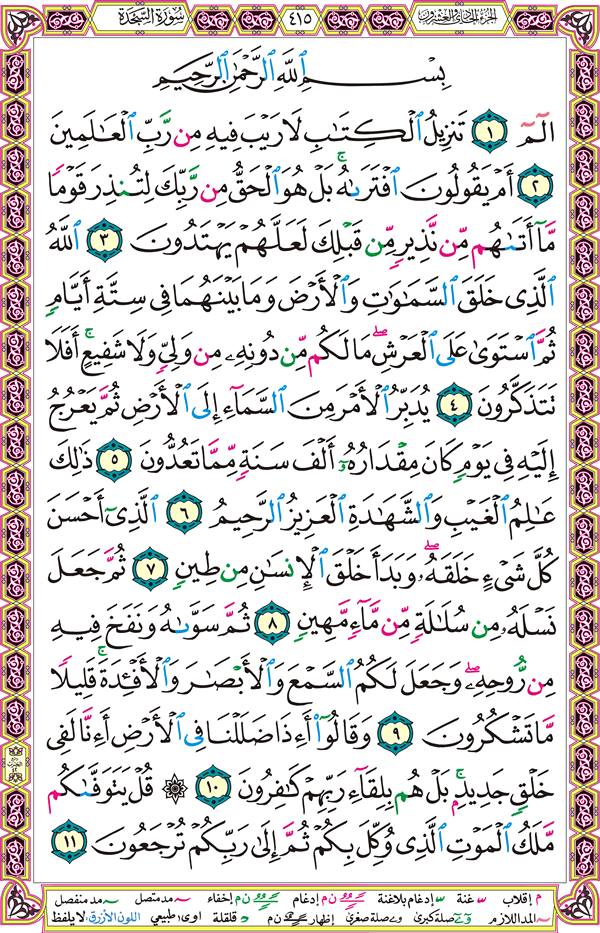 الجزء الحادي والعشرون ٤١٥ سُورَةُ السَّجْدَة
بِسْمِ ٱللَّهِ ٱلرَّحْمَٰنِ ٱلرَّحِيمِ
الٓمٓ ١ تَنزِيلُ ٱلْكِتَٰبِ لَا رَيْبَ فِيهِ مِن رَّبِّ ٱلْعَٰلَمِينَ
٢ أَمْ يَقُولُونَ ٱفْتَرَىٰهُۚ بَلْ هُوَ ٱلْحَقُّ مِن رَّبِّكَ لِتُنذِرَ قَوْمًا
مَّآ أَتَىٰهُم مِّن نَّذِيرٍ مِّن قَبْلِكَ لَعَلَّهُمْ يَهْتَدُونَ ٣ ٱللَّهُ
ٱلَّذِى خَلَقَ ٱلسَّمَٰوَٰتِ وَٱلْأَرْضَ وَمَا بَيْنَهُمَا فِى سِتَّةِ أَيَّامٍ
ثُمَّ ٱسْتَوَىٰ عَلَى ٱلْعَرْشِۖ مَا لَكُم مِّن دُونِهِۦ مِن وَلِىٍّ وَلَا شَفِيعٍۚ أَفَلَا
تَتَذَكَّرُونَ ٤ يُدَبِّرُ ٱلْأَمْرَ مِنَ ٱلسَّمَآءِ إِلَى ٱلْأَرْضِ ثُمَّ يَعْرُجُ
إِلَيْهِ فِى يَوْمٍ كَانَ مِقْدَارُهُۥٓ أَلْفَ سَنَةٍ مِّمَّا تَعُدُّونَ ٥ ذَٰلِكَ
عَٰلِمُ ٱلْغَيْبِ وَٱلشَّهَٰدَةِ ٱلْعَزِيزُ ٱلرَّحِيمُ ٦ ٱلَّذِىٓ أَحْسَنَ
كُلَّ شَىْءٍ خَلَقَهُۥۖ وَبَدَأَ خَلْقَ ٱلْإِنسَٰنِ مِن طِينٍ ٧ ثُمَّ جَعَلَ
نَسْلَهُۥ مِن سُلَٰلَةٍ مِّن مَّآءٍ مَّهِينٍ ٨ ثُمَّ سَوَّىٰهُ وَنَفَخَ فِيهِ
مِن رُّوحِهِۦۖ وَجَعَلَ لَكُمُ ٱلسَّمْعَ وَٱلْأَبْصَٰرَ وَٱلْأَفْـِٔدَةَۚ قَلِيلًا
مَّا تَشْكُرُونَ ٩ وَقَالُوٓا۟ أَءِذَا ضَلَلْنَا فِى ٱلْأَرْضِ أَءِنَّا لَفِى
خَلْقٍ جَدِيدٍۭۚ بَلْ هُم بِلِقَآءِ رَبِّهِمْ كَٰفِرُونَ ١٠ ۞ قُلْ يَتَوَفَّىٰكُم
مَّلَكُ ٱلْمَوْتِ ٱلَّذِى وُكِّلَ بِكُمْ ثُمَّ إِلَىٰ رَبِّكُمْ تُرْجَعُونَ ١١
م إقلاب غنة إدغام بلاغنة ن م إدغام ن م إخفاء مد متصل مد منفصل
المد اللازم صلة كبرى صلة صغرى إظهار ن م قلقلة اوى: طبيعي اللون الأزرق: لايلفظ